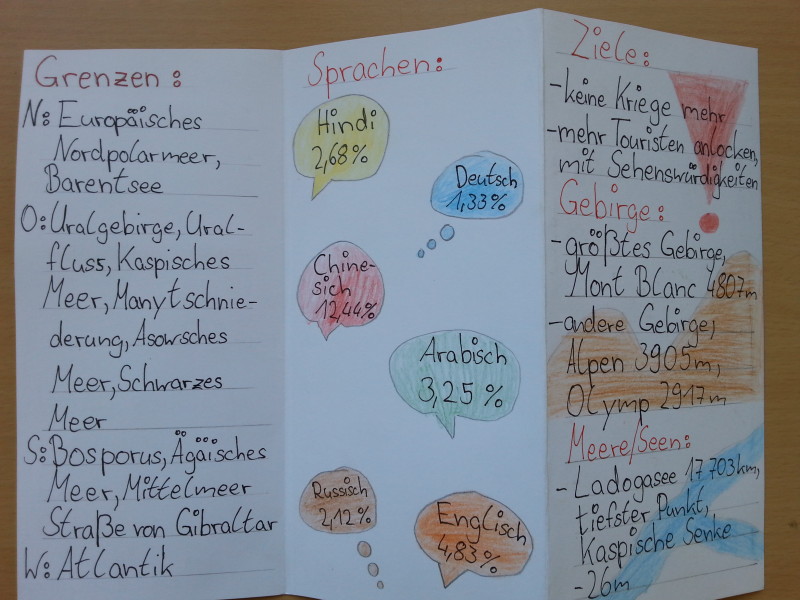 Grenzen:
N: Europäisches
Nordpolarmeer,
Barentsee
O: Uralgebirge, Ural-
fluss, Kaspisches
Meer, Manytschnie-
derung, Asowsches
Meer, Schwarzes
Meer
S: Bosporus, Ägäisches
Meer, Mittelmeer
Straße von Gibraltar
W: Atlantik
Sprachen:
Hindi
2,68%
Deutsch
1,33%
Chine-
sich
12,44%
Arabisch
3,25 %
Russisch
2,12%
Englisch
4,83%
Ziele:
-keine Kriege mehr
-mehr Touristen anlocken,
mit Sehenswürdigkeiten
Gebirge:
-größtes Gebirge,
Mont Blanc 4807m
-andere Gebirge,
Alpen 3905m,
Olymp 2917m
Meere/Seen:
- Ladogasee 17 703km,
tiefster Punkt,
Kaspische Senke
-26m